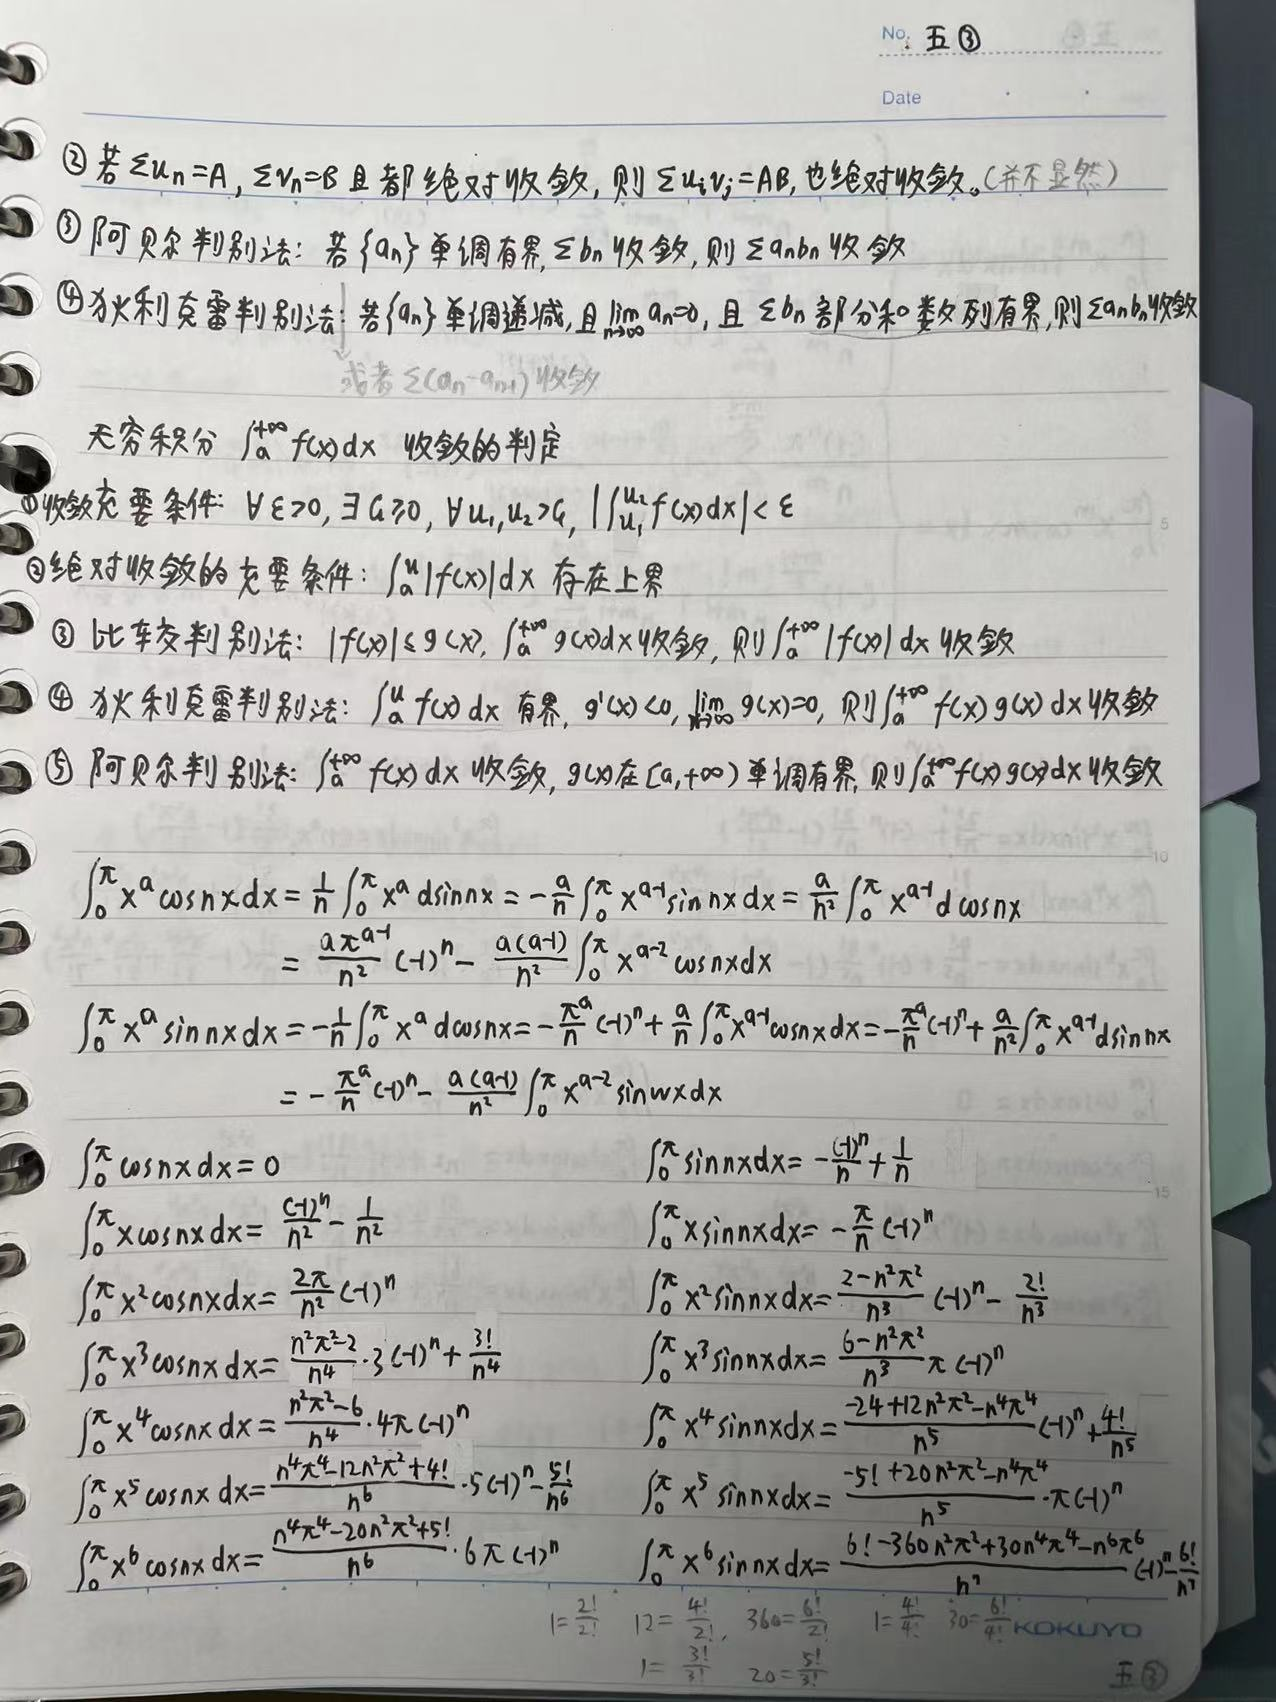 No. 五③
Date
②若Σuₙ=A, Σvₙ=B 且都绝对收敛, 则Σuᵢvⱼ=AB, 也绝对收敛。(并不显然)
③阿贝尔判别法: 若{aₙ}单调有界, Σbₙ收敛, 则Σaₙbₙ收敛
④狄利克雷判别法: 若{aₙ}单调递减, 且lim_{n→∞} aₙ=0, 且Σbₙ部分和数列有界, 则Σaₙbₙ收敛
或者Σ(aₙ-aₙ₊₁)收敛
无穷积分 ∫ₐ^{+∞} f(x)dx 收敛的判定
①收敛充要条件: ∀ε>0, ∃G≥0, ∀u₁,u₂>G, |∫_{u₁}^{u₂} f(x)dx|<ε
②绝对收敛的充要条件: ∫ₐ^u |f(x)|dx 存在上界
③比较判别法: |f(x)|≤g(x), ∫ₐ^{+∞} g(x)dx收敛, 则∫ₐ^{+∞} |f(x)|dx收敛
④狄利克雷判别法: ∫ₐ^u f(x)dx 有界, g'(x)<0, lim_{x→∞} g(x)=0, 则∫ₐ^{+∞} f(x)g(x)dx收敛
⑤阿贝尔判别法: ∫ₐ^{+∞} f(x)dx 收敛, g(x)在[a,+∞)单调有界, 则∫ₐ^{+∞} f(x)g(x)dx收敛
∫₀^π x^a cosnxdx = 1/n ∫₀^π x^a dsinnx = -a/n ∫₀^π x^{a-1} sinnxdx = a/n² ∫₀^π x^{a-1} dcosnx
= aπ^{a-1}/n² (-1)^n - a(a-1)/n² ∫₀^π x^{a-2} cosnxdx
∫₀^π x^a sinnxdx = -1/n ∫₀^π x^a dcosnx = -π^a/n (-1)^n + a/n ∫₀^π x^{a-1} cosnxdx = -π^a/n (-1)^n + a/n² ∫₀^π x^{a-1} dsinnx
= -π^a/n (-1)^n - a(a-1)/n² ∫₀^π x^{a-2} sinwxdx
∫₀^π cosnxdx = 0 ∫₀^π sinnxdx = -(-1)^n/n + 1/n
∫₀^π xcosnxdx = (-1)^n/n² - 1/n² ∫₀^π xsinnxdx = -π/n (-1)^n
∫₀^π x²cosnxdx = 2π/n² (-1)^n ∫₀^π x²sinnxdx = (2-n²π²)/n³ (-1)^n - 2!/n³
∫₀^π x³cosnxdx = (n²π²-2)/n⁴ ·3(-1)^n + 3!/n⁴ ∫₀^π x³sinnxdx = (6-n²π²)/n³ π(-1)^n
∫₀^π x⁴cosnxdx = (n²π²-6)/n⁴ ·4π(-1)^n ∫₀^π x⁴sinnxdx = (-24+12n²π²-n⁴π⁴)/n⁵ (-1)^n + 4!/n⁵
∫₀^π x⁵cosnxdx = (n⁴π⁴-12n²π²+4!)/n⁶ ·5(-1)^n - 5!/n⁶ ∫₀^π x⁵sinnxdx = (-5!+20n²π²-n⁴π⁴)/n⁵ ·π(-1)^n
∫₀^π x⁶cosnxdx = (n⁴π⁴-20n²π²+5!)/n⁶ ·6π(-1)^n ∫₀^π x⁶sinnxdx = (6!-360n²π²+30n⁴π⁴-n⁶π⁶)/n⁷ (-1)^n - 6!/n⁷
1=2!/2! 12=4!/2!, 360=6!/2! 1=4!/4! 30=6!/4! KOKUYO
1=3!/3! 20=5!/3!
5
10
15